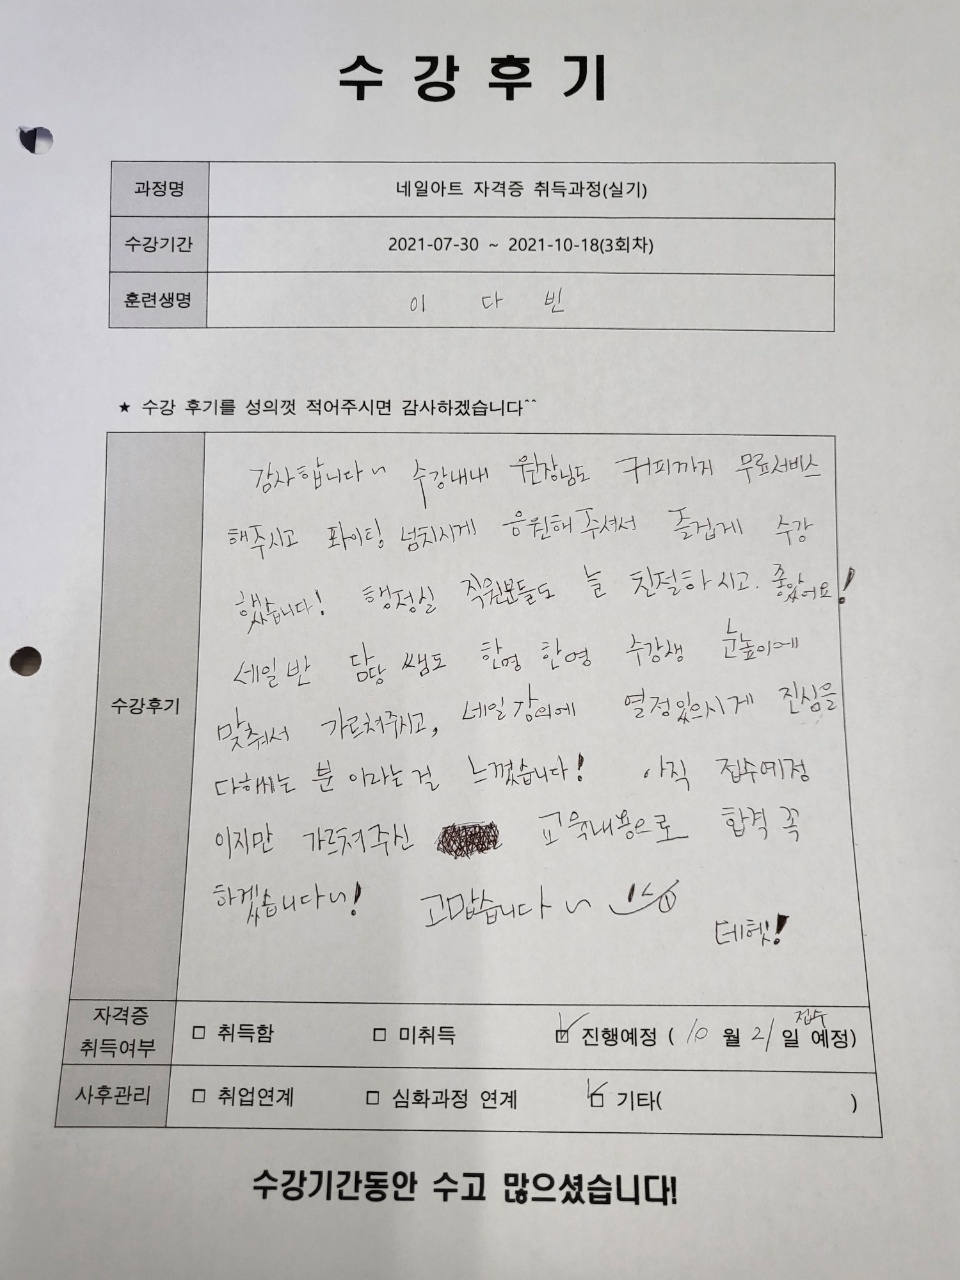 수 강 후 기
과정명 네일아트 자격증 취득과정(실기)
수강기간 2021-07-30 ~ 2021-10-18(3회차)
훈련생명 이 다 빈
★ 수강 후기를 성의껏 적어주시면 감사하겠습니다^^
수강후기
감사합니다~ 수강내내 원장님도 커피까지 무료서비스
해주시고 화이팅 넘치시게 응원해주셔서 즐겁게 수강
했습니다! 행정실 직원분들도 늘 친절하시고. 좋았어요!
네일반 담당 쌤도 한명 한명 수강생 눈높이에
맞춰서 가르쳐주시고, 네일강의에 열정있으시게 진심을
다해는 분 이라는걸 느꼈습니다! 아직 접수예정
이지만 가르쳐주신 교육내용으로 합격 꼭
하겠습니다~! 고맙습니다~
데헷!
자격증 취득여부 □ 취득함 □ 미취득 ☑ 진행예정 ( 10 월 21 일 접수 예정)
사후관리 □ 취업연계 □ 심화과정 연계 ☑ 기타( )
수강기간동안 수고 많으셨습니다!